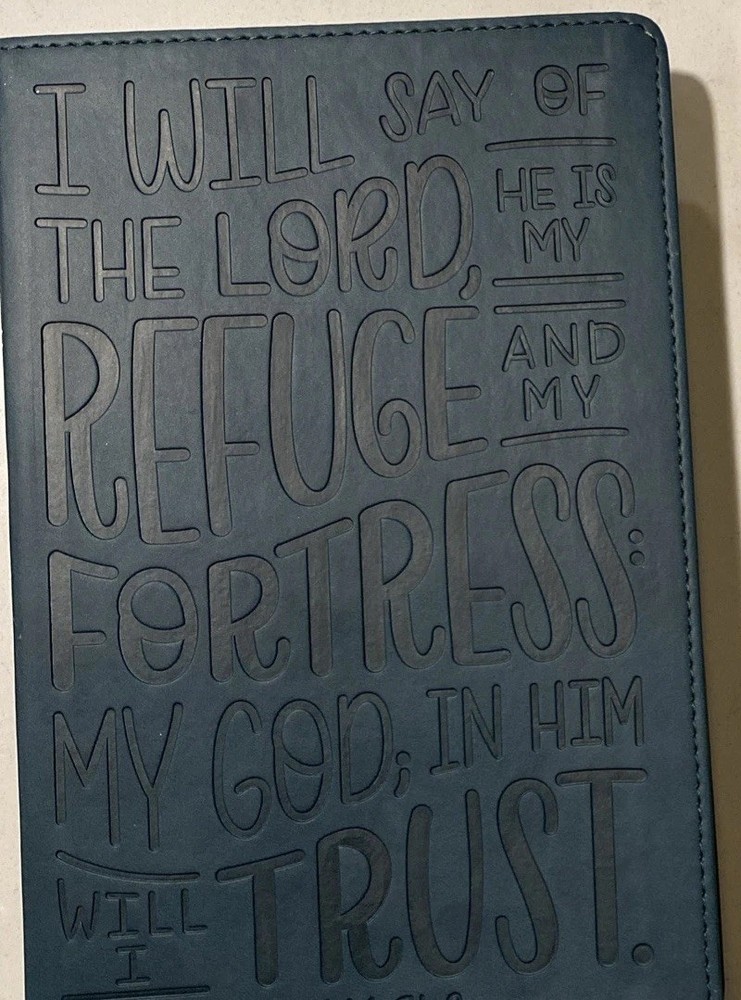 I WILL SAY OF
THE LORD, HE IS
MY
REFUGE AND
MY
FORTRESS:
MY GOD; IN HIM
WILL
I TRUST.